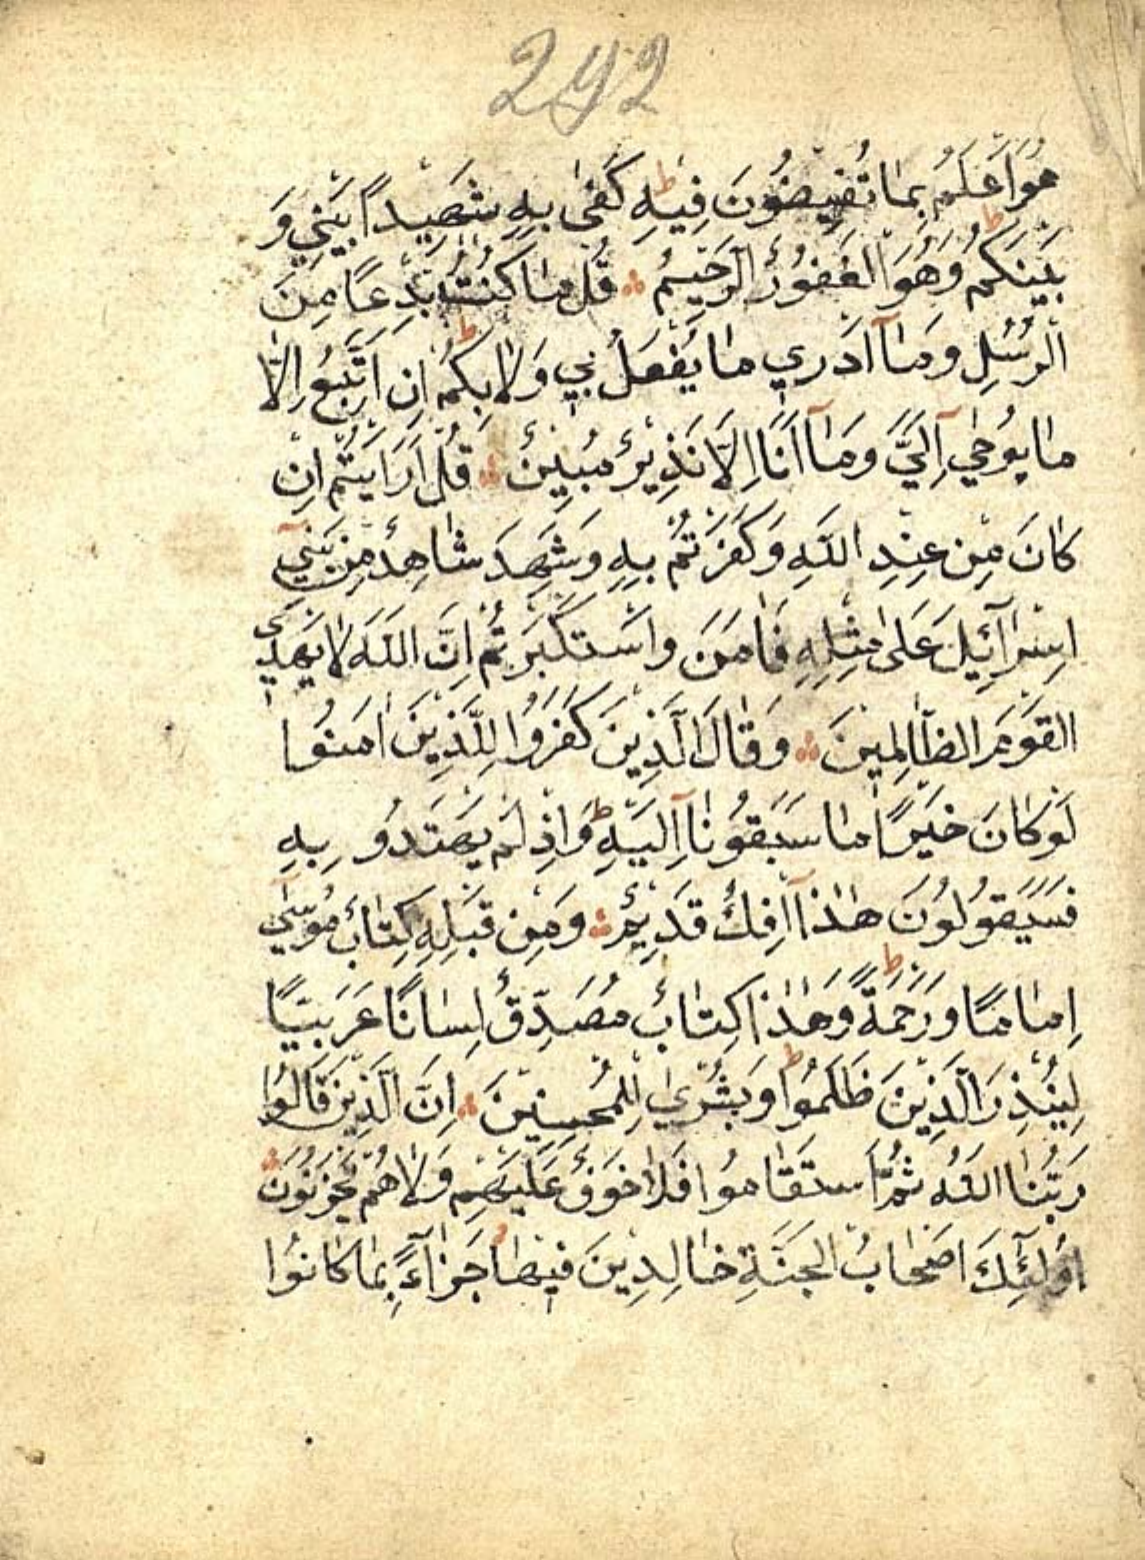 292
هُوَ اَعْلَمُ بِمَا تُفِيضُونَ فِيهِ كَفٰى بِهِ شَهِيدًا بَيْنِي وَ
بَيْنَكُمْ وَهُوَ الْغَفُورُ الرَّحِيمُ قُلْ مَا كُنْتُ بِدْعًا مِنَ
الرُّسُلِ وَمَآ اَدْرِي مَا يُفْعَلُ بِي وَلَا بِكُمْ اِنْ اَتَّبِعُ اِلَّا
مَا يُوحٰي اِلَيَّ وَمَآ اَنَا اِلَّا نَذِيرٌ مُبِينٌ قُلْ اَرَاَيْتُمْ اِنْ
كَانَ مِنْ عِنْدِ اللّٰهِ وَكَفَرْتُمْ بِهِ وَشَهِدَ شَاهِدٌ مِنْ بَنِيٓ
اِسْرَآئِيلَ عَلٰى مِثْلِهِ فَاٰمَنَ وَاسْتَكْبَرْتُمْ اِنَّ اللّٰهَ لَا يَهْدِي
الْقَوْمَ الظَّالِمِينَ وَقَالَ الَّذِينَ كَفَرُوا لِلَّذِينَ اٰمَنُوا
لَوْ كَانَ خَيْرًا مَا سَبَقُونَآ اِلَيْهِ وَاِذْ لَمْ يَهْتَدُو بِهِ
فَسَيَقُولُونَ هٰذَآ اِفْكٌ قَدِيمٌ وَمِنْ قَبْلِهِ كِتَابُ مُوسٰٓي
اِمَامًا وَرَحْمَةً وَهٰذَا كِتَابٌ مُصَدِّقٌ لِسَانًا عَرَبِيًّا
لِيُنْذِرَ الَّذِينَ ظَلَمُوا وَبُشْرٰي لِلْمُحْسِنِينَ اِنَّ الَّذِينَ قَالُوا
رَبُّنَا اللّٰهُ ثُمَّ اسْتَقَامُوا فَلَا خَوْفٌ عَلَيْهِمْ وَلَا هُمْ يَحْزَنُونَ
اُولٰٓئِكَ اَصْحَابُ الْجَنَّةِ خَالِدِينَ فِيهَا جَزَآءً بِمَا كَانُوا